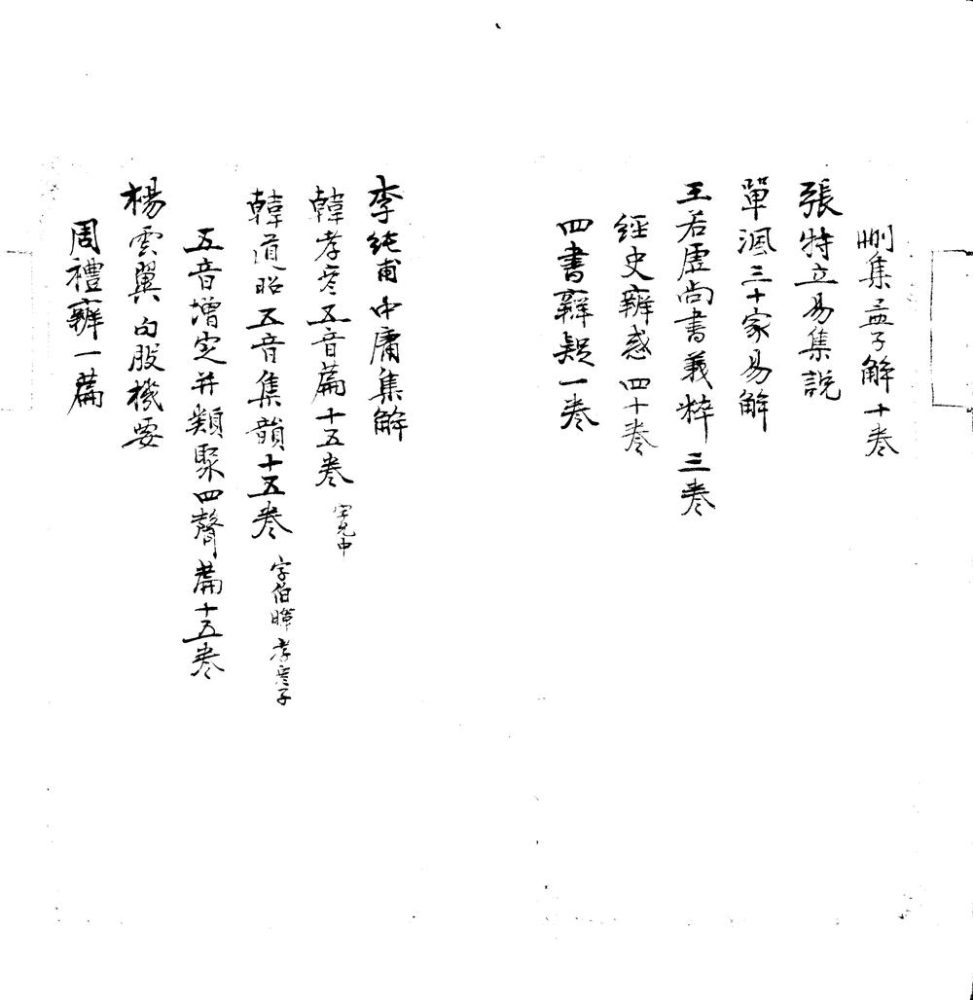 刪集孟子解十卷
張特立易集說
單渢三十家易解
王若虛尚書義粹三卷
經史辨惑四十卷
四書辨疑一卷
李純甫中庸集解
韓孝彥五音篇十五卷 字允中
韓道昭五音集韻十五卷 字伯暉孝彥子
五音增定并類聚四聲篇十五卷
楊雲翼勾股機要
周禮辨一篇